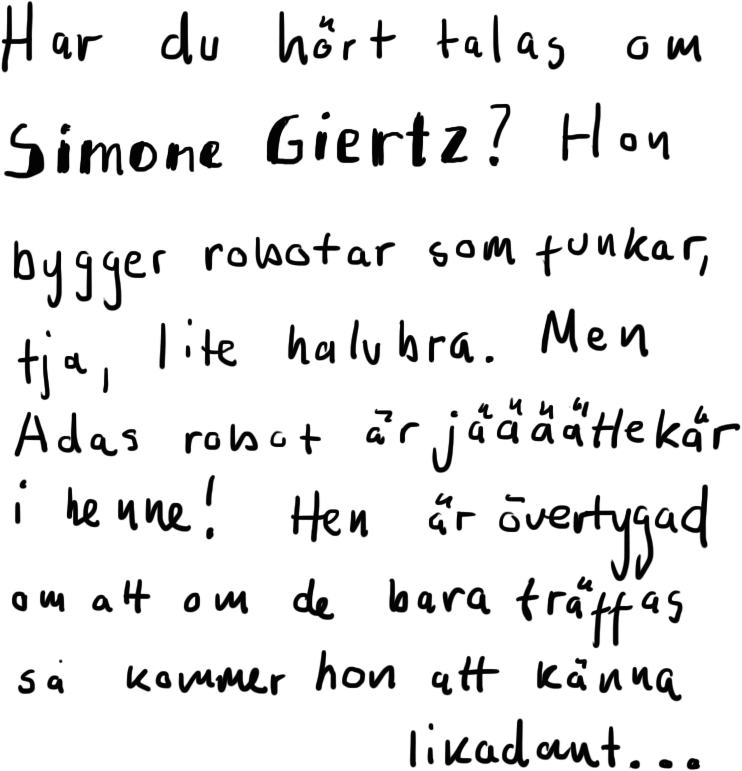 Har du hört talas om
Simone Giertz? Hon
bygger robotar som funkar,
tja, lite halvbra. Men
Adas robot är jääääättekär
i henne! Hen är övertygad
om att om de bara träffas
så kommer hon att känna
likadant...